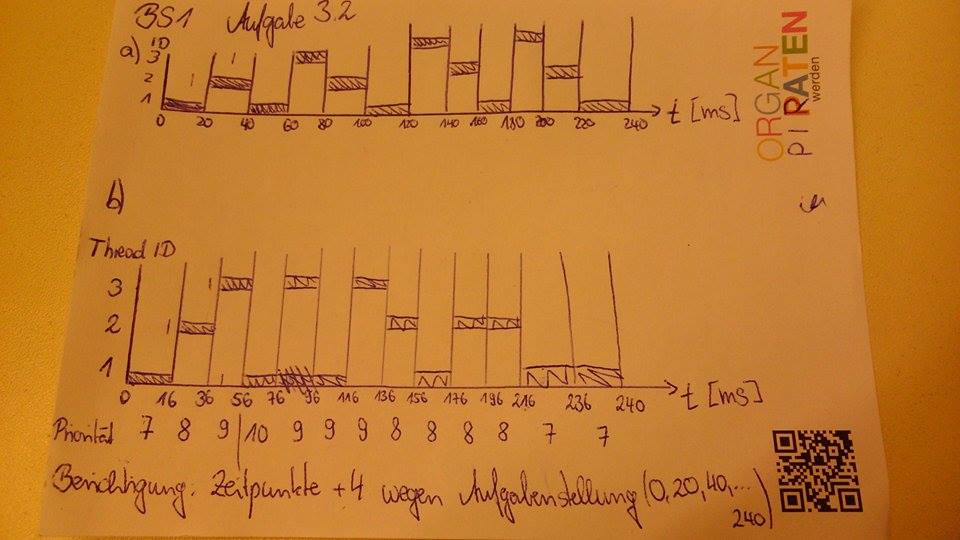 BS1 Aufgabe 3.2
a) ID
3
2
1
0 20 40 60 80 100 120 140 160 180 200 220 240 t [ms]
ORGAN
PIRATEN
werden
b)
Thread ID
3
2
1
0 16 36 56 76 96 116 136 156 176 196 216 236 240 t [ms]
Priorität 7 8 9 10 9 9 9 8 8 8 8 7 7
Berichtigung: Zeitpunkte +4 wegen Aufgabenstellung (0, 20, 40, ...
240)